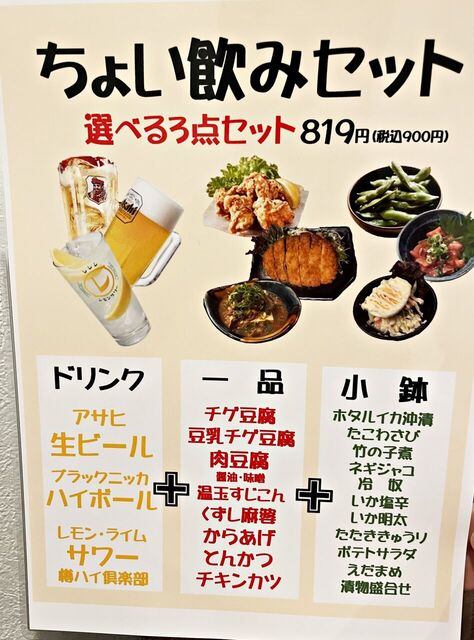 ちょい飲みセット
選べる3点セット 819円(税込900円)
ドリンク
アサヒ
生ビール
ブラックニッカ
ハイボール
レモン・ライム
サワー
樽ハイ倶楽部
+
一品
チゲ豆腐
豆乳チゲ豆腐
肉豆腐
醤油・味噌
温玉すじこん
くずし麻婆
からあげ
とんかつ
チキンカツ
+
小鉢
ホタルイカ沖漬
たこわさび
竹の子煮
ネギジャコ
冷奴
いか塩辛
いか明太
たたききゅうり
ポテトサラダ
えだまめ
漬物盛合せ